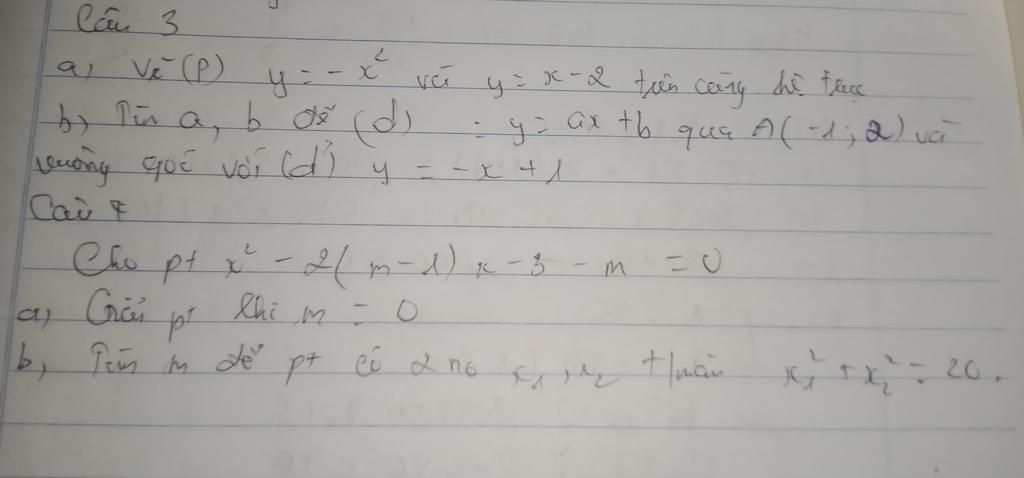 Câu 3
a, Vẽ (P) y = -x² và y = x - 2 trên cùng hệ trục
b, Tìm a, b để (d) : y = ax + b qua A(-1; 2) và
vuông góc với (d') y = -x + 1
Câu 4
Cho pt x² - 2(m - 1) x - 3 - m = 0
a, Giải pt khi m = 0
b, Tìm m để pt có 2 no x₁, x₂ t/mãn x₁² + x₂² = 20.